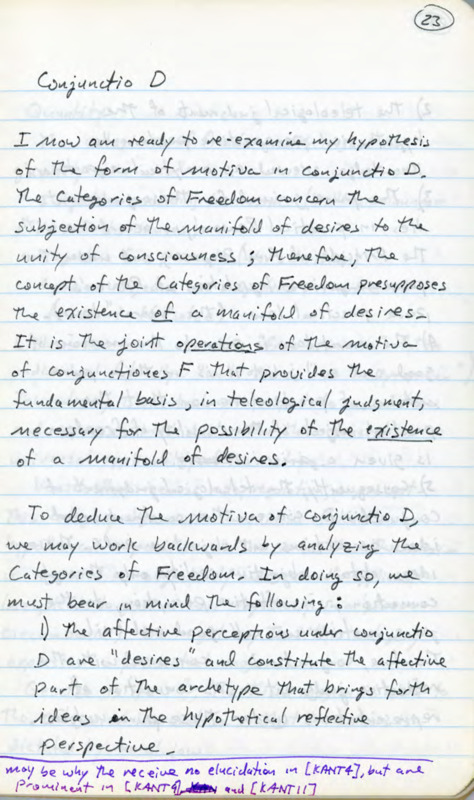 23
Conjunctio D
I now am ready to re-examine my hypothesis
of the form of motiva in conjunctio D.
The Categories of Freedom concern the
subjection of the manifold of desires to the
unity of consciousness; therefore, the
concept of the Categories of Freedom presupposes
the existence of a manifold of desires.
It is the joint operations of the motiva
of conjunctiones F that provides the
fundamental basis, in teleological judgment,
necessary for the possibility of the existence
of a manifold of desires.
To deduce the motiva of conjunctio D,
we may work backwards by analyzing the
Categories of Freedom. In doing so, we
must bear in mind the following:
1) the affective perceptions under conjunctio
D are "desires" and constitute the affective
part of the archetype that brings forth
ideas in the hypothetical reflective
perspective.
may be why the receive no elucidation in [KANT4], but are
prominent in [KANT9] and [KANT11]